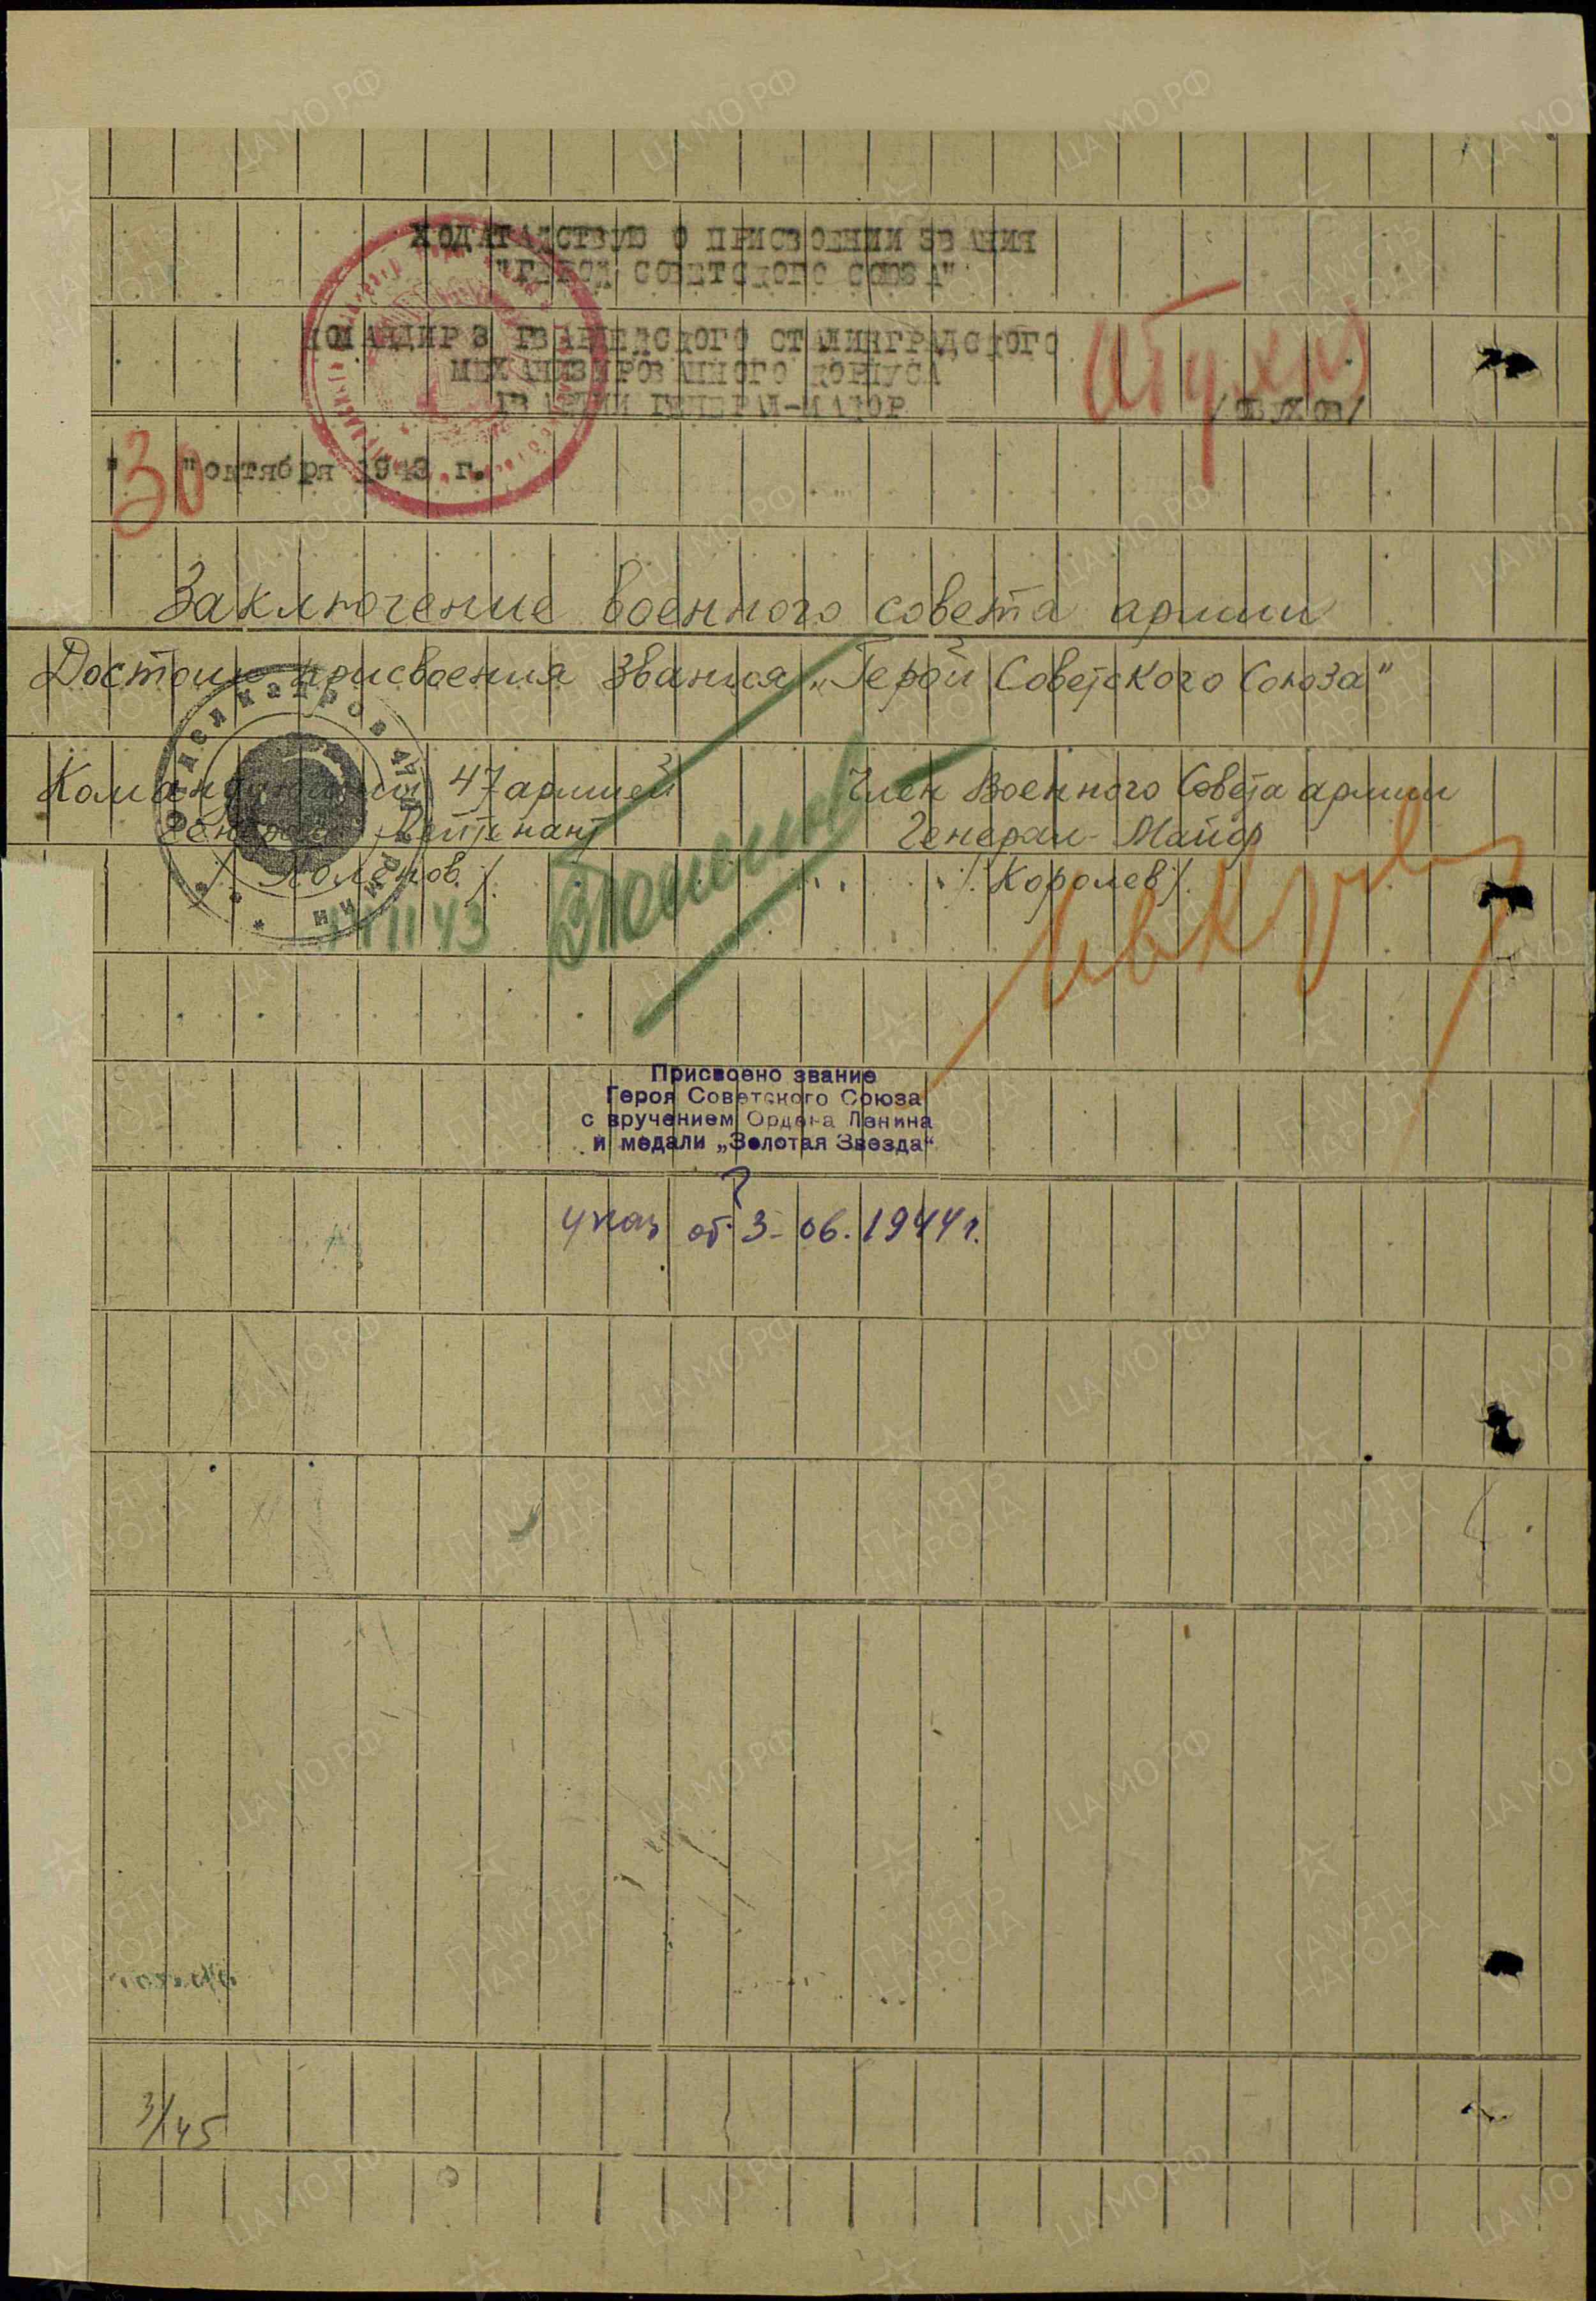 ХОДАТАЙСТВУЮ О ПРИСВОЕНИИ ЗВАНИЯ
"ГЕРОЙ СОВЕТСКОГО СОЮЗА"
КОМАНДИР 3 ГВАРДЕЙСКОГО СТАЛИНГРАДСКОГО
МЕХАНИЗИРОВАННОГО КОРПУСА
ГВАРДИИ ГЕНЕРАЛ-МАЙОР
/ОБУХОВ/
"30" октября 1943 г.
Заключение военного совета армии
Достоин присвоения звания „Герой Советского Союза"
Командующий 47 армией
Генерал Лейтенант
Член Военного Совета армии
Генерал-Майор
/Королев/
11 43
Присвоено звание
Героя Советского Союза
с вручением Ордена Ленина
и медали „Золотая Звезда"
указ от 3-06.1944 г.
3/145
ЦА МО РФ
ПАМЯТЬ
НАРОДА